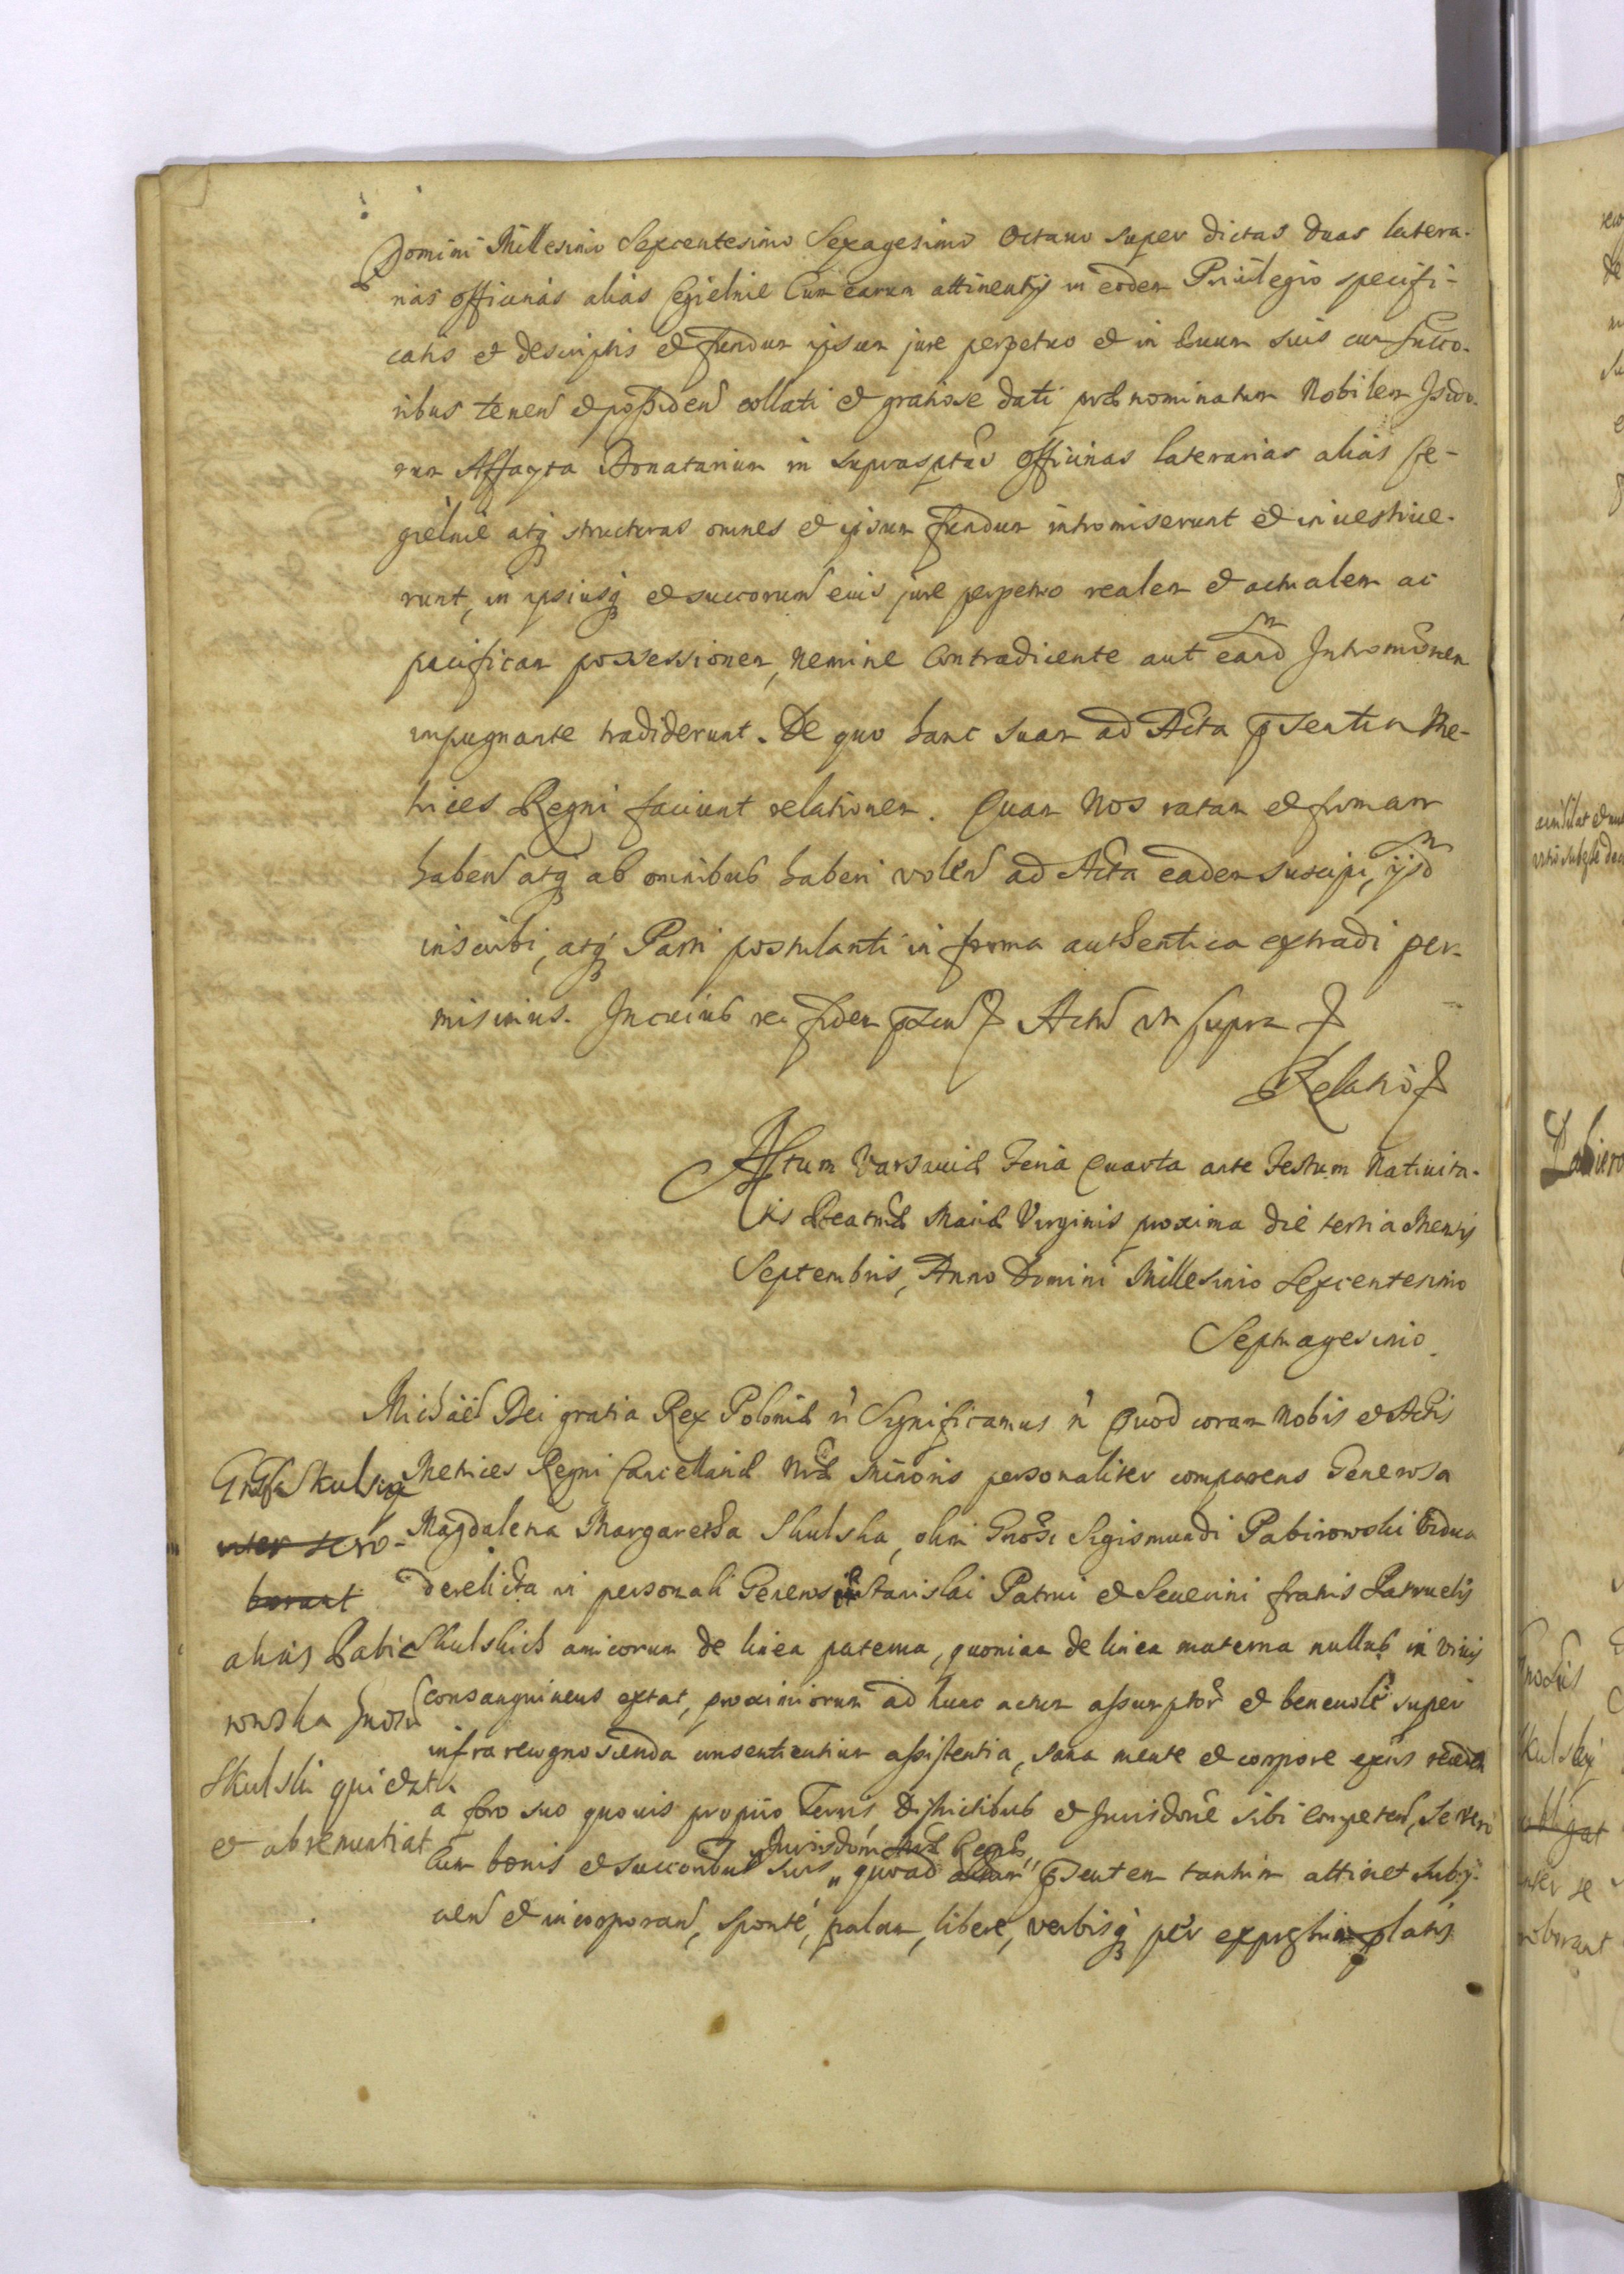 Domini Millesimo Sexcentesimo Sexagesimo Octauo super dictas duas latera-
rias officinas alias Cegielnie Cum earum attinentijs in eodem Priuilegio specifi-
catis et descriptis et fundum ipsum jure perpetuo et in suum suis cum succo-
ribus tenen et possiden collati et gratiose dati prænominatum Nobilem Isido-
rum Affayta Donatarium in suprasptas officinas laterarias alias Ce-
gielnie atq structuras omnes et ipsum fundum intromiserunt et inuestiue-
runt, in ipsiusq et succorum eius jure perpetuo realem et actualem ac
pacificam possessionem, Nemine Contradicente aut eand Intromonem
impugnante tradiderunt. De quo hanc suam ad Acta psentia Me-
trices Regni faciunt relationem. Quam Nos ratam et firmam
haben atq ab omnibus haberi volen ad Acta eadem suscipi, ijsd
inscribi, atq Parti postulanti in forma authentica extradi per-
misimus. In cuius rei fidem psen Actu ut supra
Relatio
Actum Varsauiæ Feria Quarta ante Festum Natiuita-
tis Beatmæ Mariæ Virginis proxima die tertia Mensis
Septembris, Anno Domini Millesimo Sexcentesimo
Septuagesimo
Michaël Dei gratia Rex Poloniæ Significamus Quod coram Nobis et Actis
Metrices Regni Cancellariæ Nræ Minoris personaliter comparens Generosa
Magdalena Margaretha Skulska, olim Gnosi Sigismundi Pabirowski Vidua
derelicta in personali Generosi Stanislai Patrui et Seuerini fratris Patruelis
Skulskich amicorum de linea paterna, quoniam de linea materna nullus in viuis
consanguineus extat, proximiorum ad hunc actum assumptor et beneuole super
infrarecognoscenda consentientium assistentia, sana mente et corpore exns
a foro suo quouis proprio Terris, Districtibus et Jurisdone sibi competen, se vero
Jurisdoni Nræ
Cum bonis et succoribus suis quoad psentem tantum attinet subij-
cien et incorporan, sponte, palam, libere, verbisq per
Skulska
inter se ro-
borant
alias Pabie
rowska Gnos
Skulski quietat
et abrenuntiat